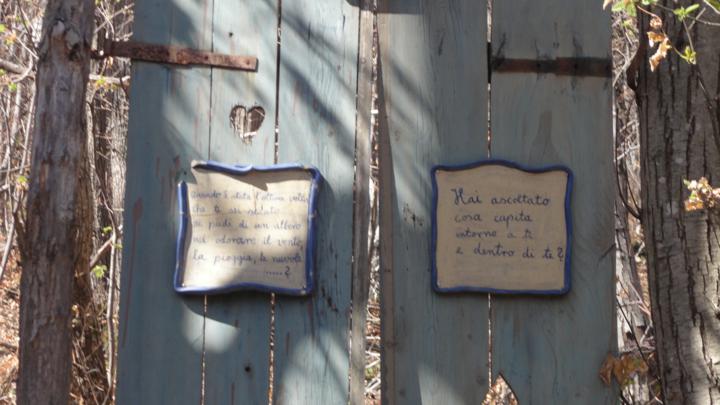 Quando è stata l'ultima volta
che ti sei seduto
ai piedi di un albero
ad odorare il vento,
la pioggia, le nuvole
.....?
Hai ascoltato
cosa capita
intorno a te
e dentro di te?